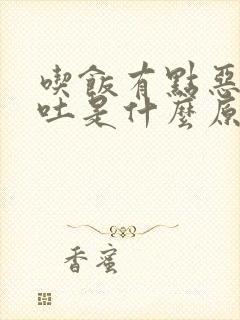 喫飯有點惡
吐是什麼原
香蜜